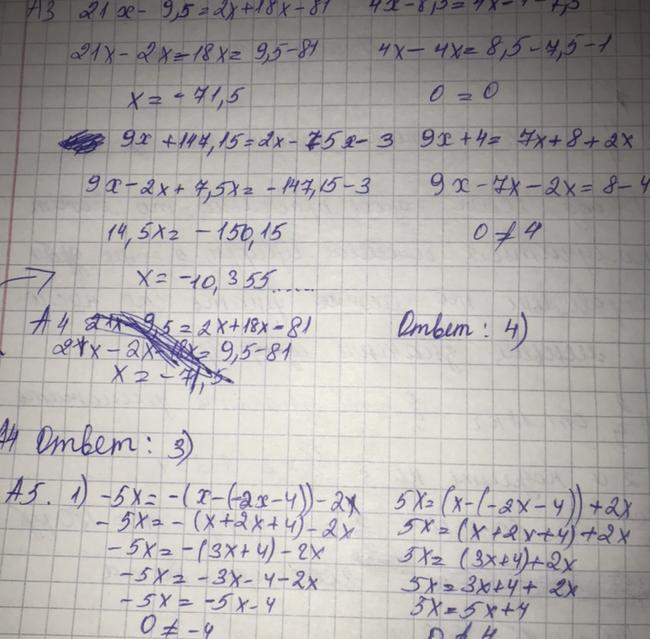 А3 21x - 9,5 = 2x + 18x - 81
21x - 2x - 18x = 9,5 - 81
x = - 71,5
4x - 4x = 8,5 - 7,5 - 1
0 = 0
9x + 147,15 = 2x - 75x - 3
9x - 2x + 7,5x = - 147,15 - 3
14,5x = - 150,15
x = -10,355.....
9x + 4 = 7x + 8 + 2x
9x - 7x - 2x = 8 - 4
0 ≠ 4
Ответ: 4)
А4 21x - 9,5 = 2x + 18x - 81
21x - 2x - 18x = 9,5 - 81
x = - 71,5
А4 Ответ: 3)
А5. 1) -5x = -(x-(-2x-4)) - 2x
- 5x = - (x+2x+4) - 2x
- 5x = -(3x+4) - 2x
- 5x = -3x - 4 - 2x
- 5x = -5x - 4
0 ≠ -4
5x = (x-(-2x-4)) + 2x
5x = (x+2x+4) + 2x
5x = (3x+4) + 2x
5x = 3x + 4 + 2x
5x = 5x + 4
0 ≠ 4